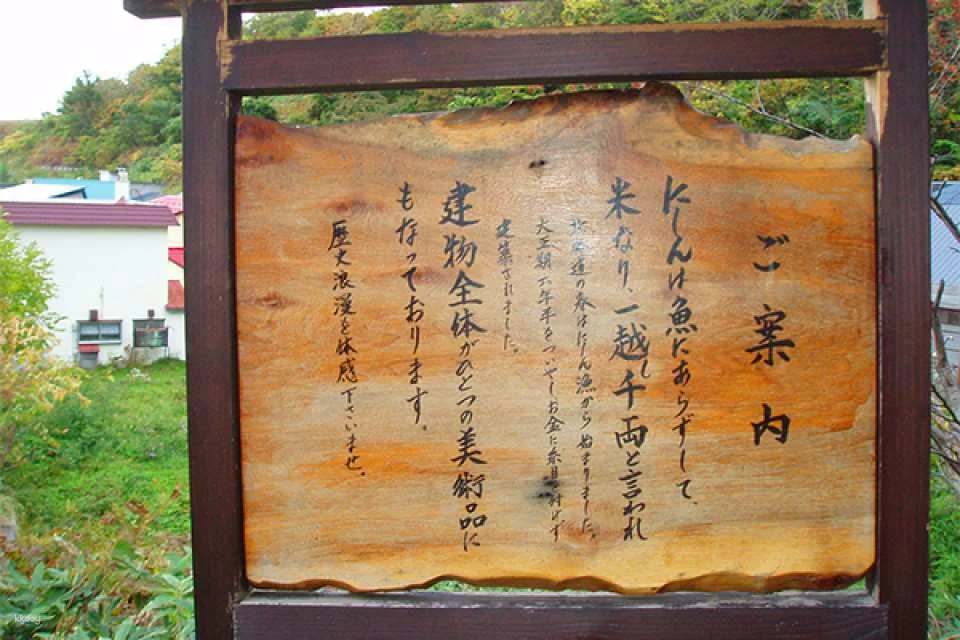 ご案内
にしんは魚にあらずして、
米なり、一起し千両と言われ
北海道の春はにしん漁から始まりました。
大正期六年半をついやしお金に糸目を付けず
建築されました。
建物全体がひとつの美術品に
もなっております。
歴史浪漫を体感下さいませ。
kkday